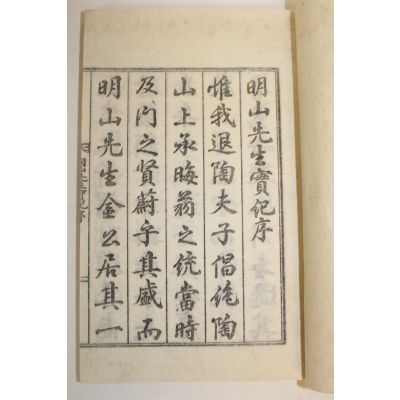 明山先生實紀序
惟我退陶夫子倡絶陶
山上承晦翁之統當時
及門之賢蔚乎其盛而
明山先生金公居其一